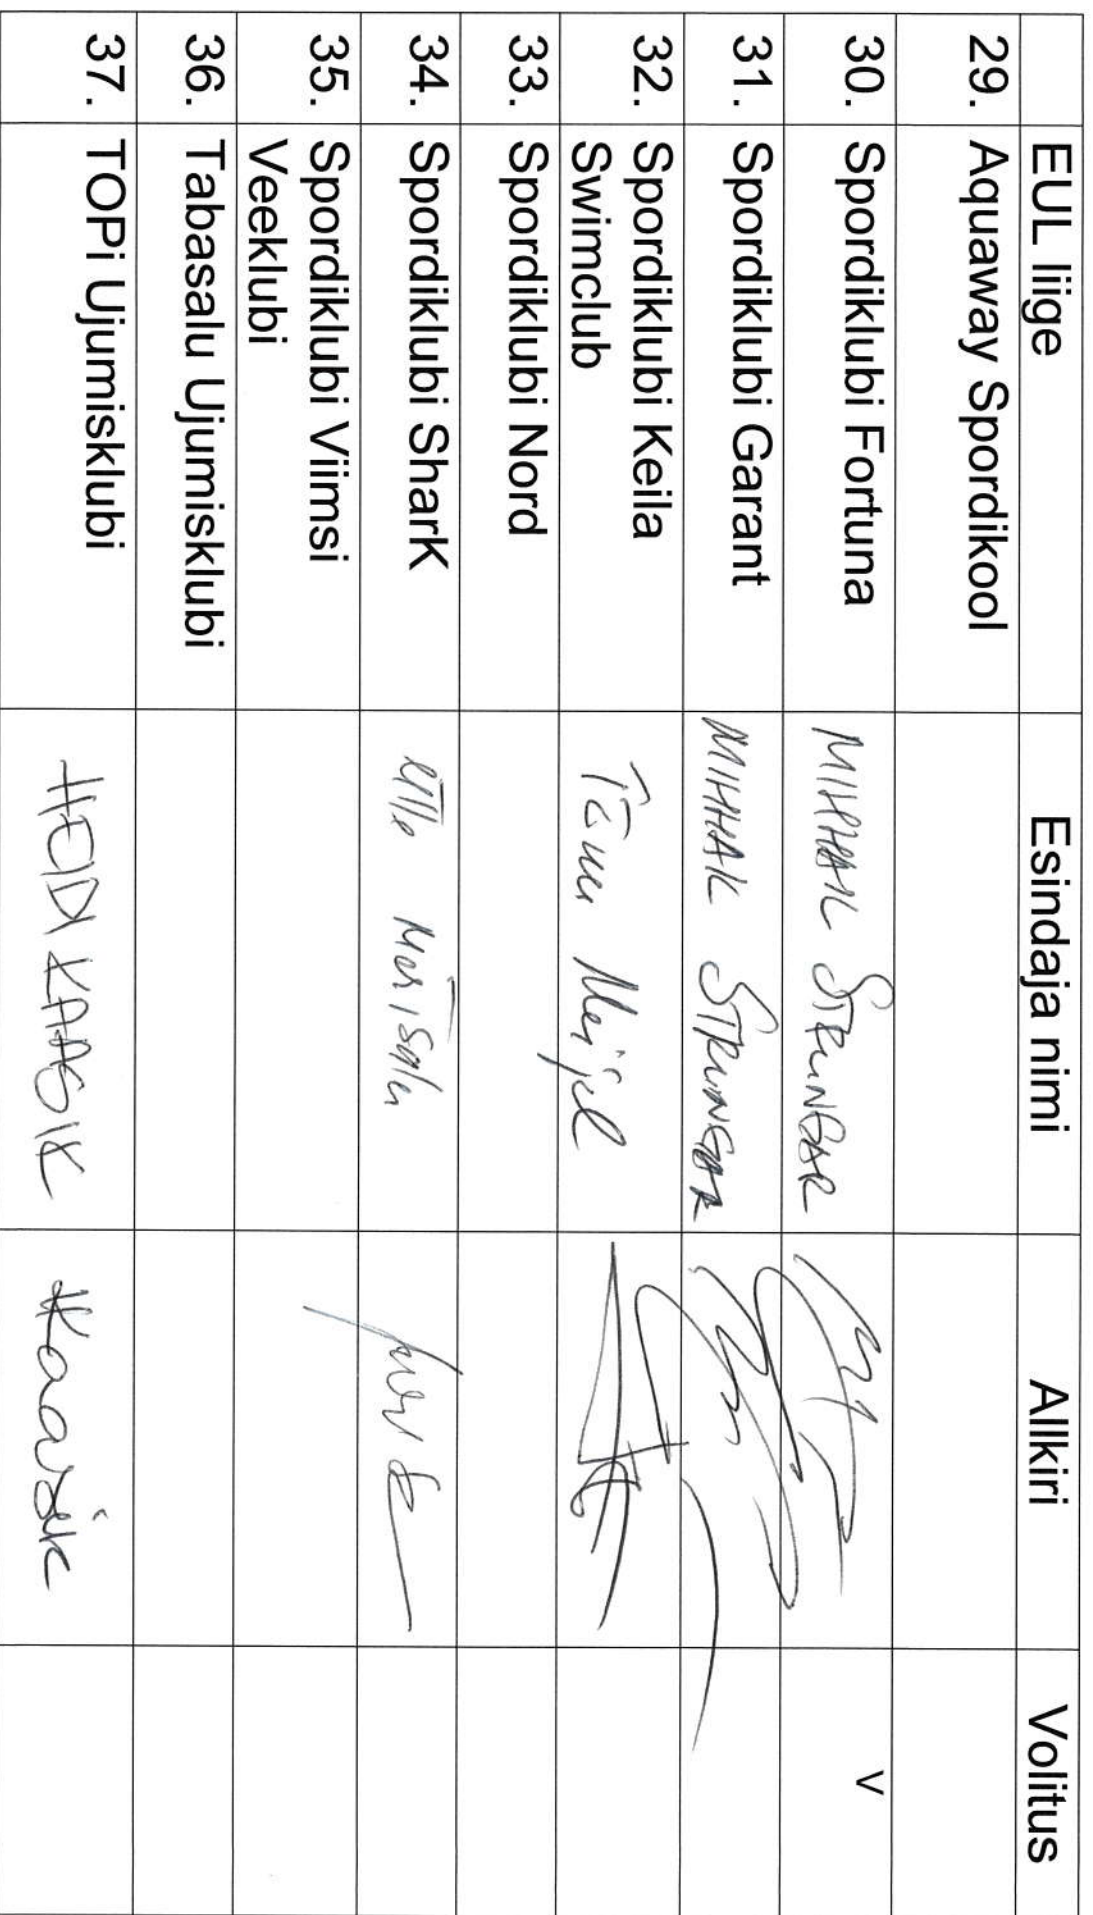 EUL liige Esindaja nimi Allkiri Volitus
29. Aquaway Spordikool
30. Spordiklubi Fortuna MIHHAIL STRUNGAR v
31. Spordiklubi Garant MIHHAIL STRUNGAR
32. Spordiklubi Keila Tõnu Meijel
Swimclub
33. Spordiklubi Nord
34. Spordiklubi SharK Ülle Merisalu
35. Spordiklubi Viimsi
Veeklubi
36. Tabasalu Ujumisklubi
37. TOPi Ujumisklubi HEIDI KAASIK HKaasik